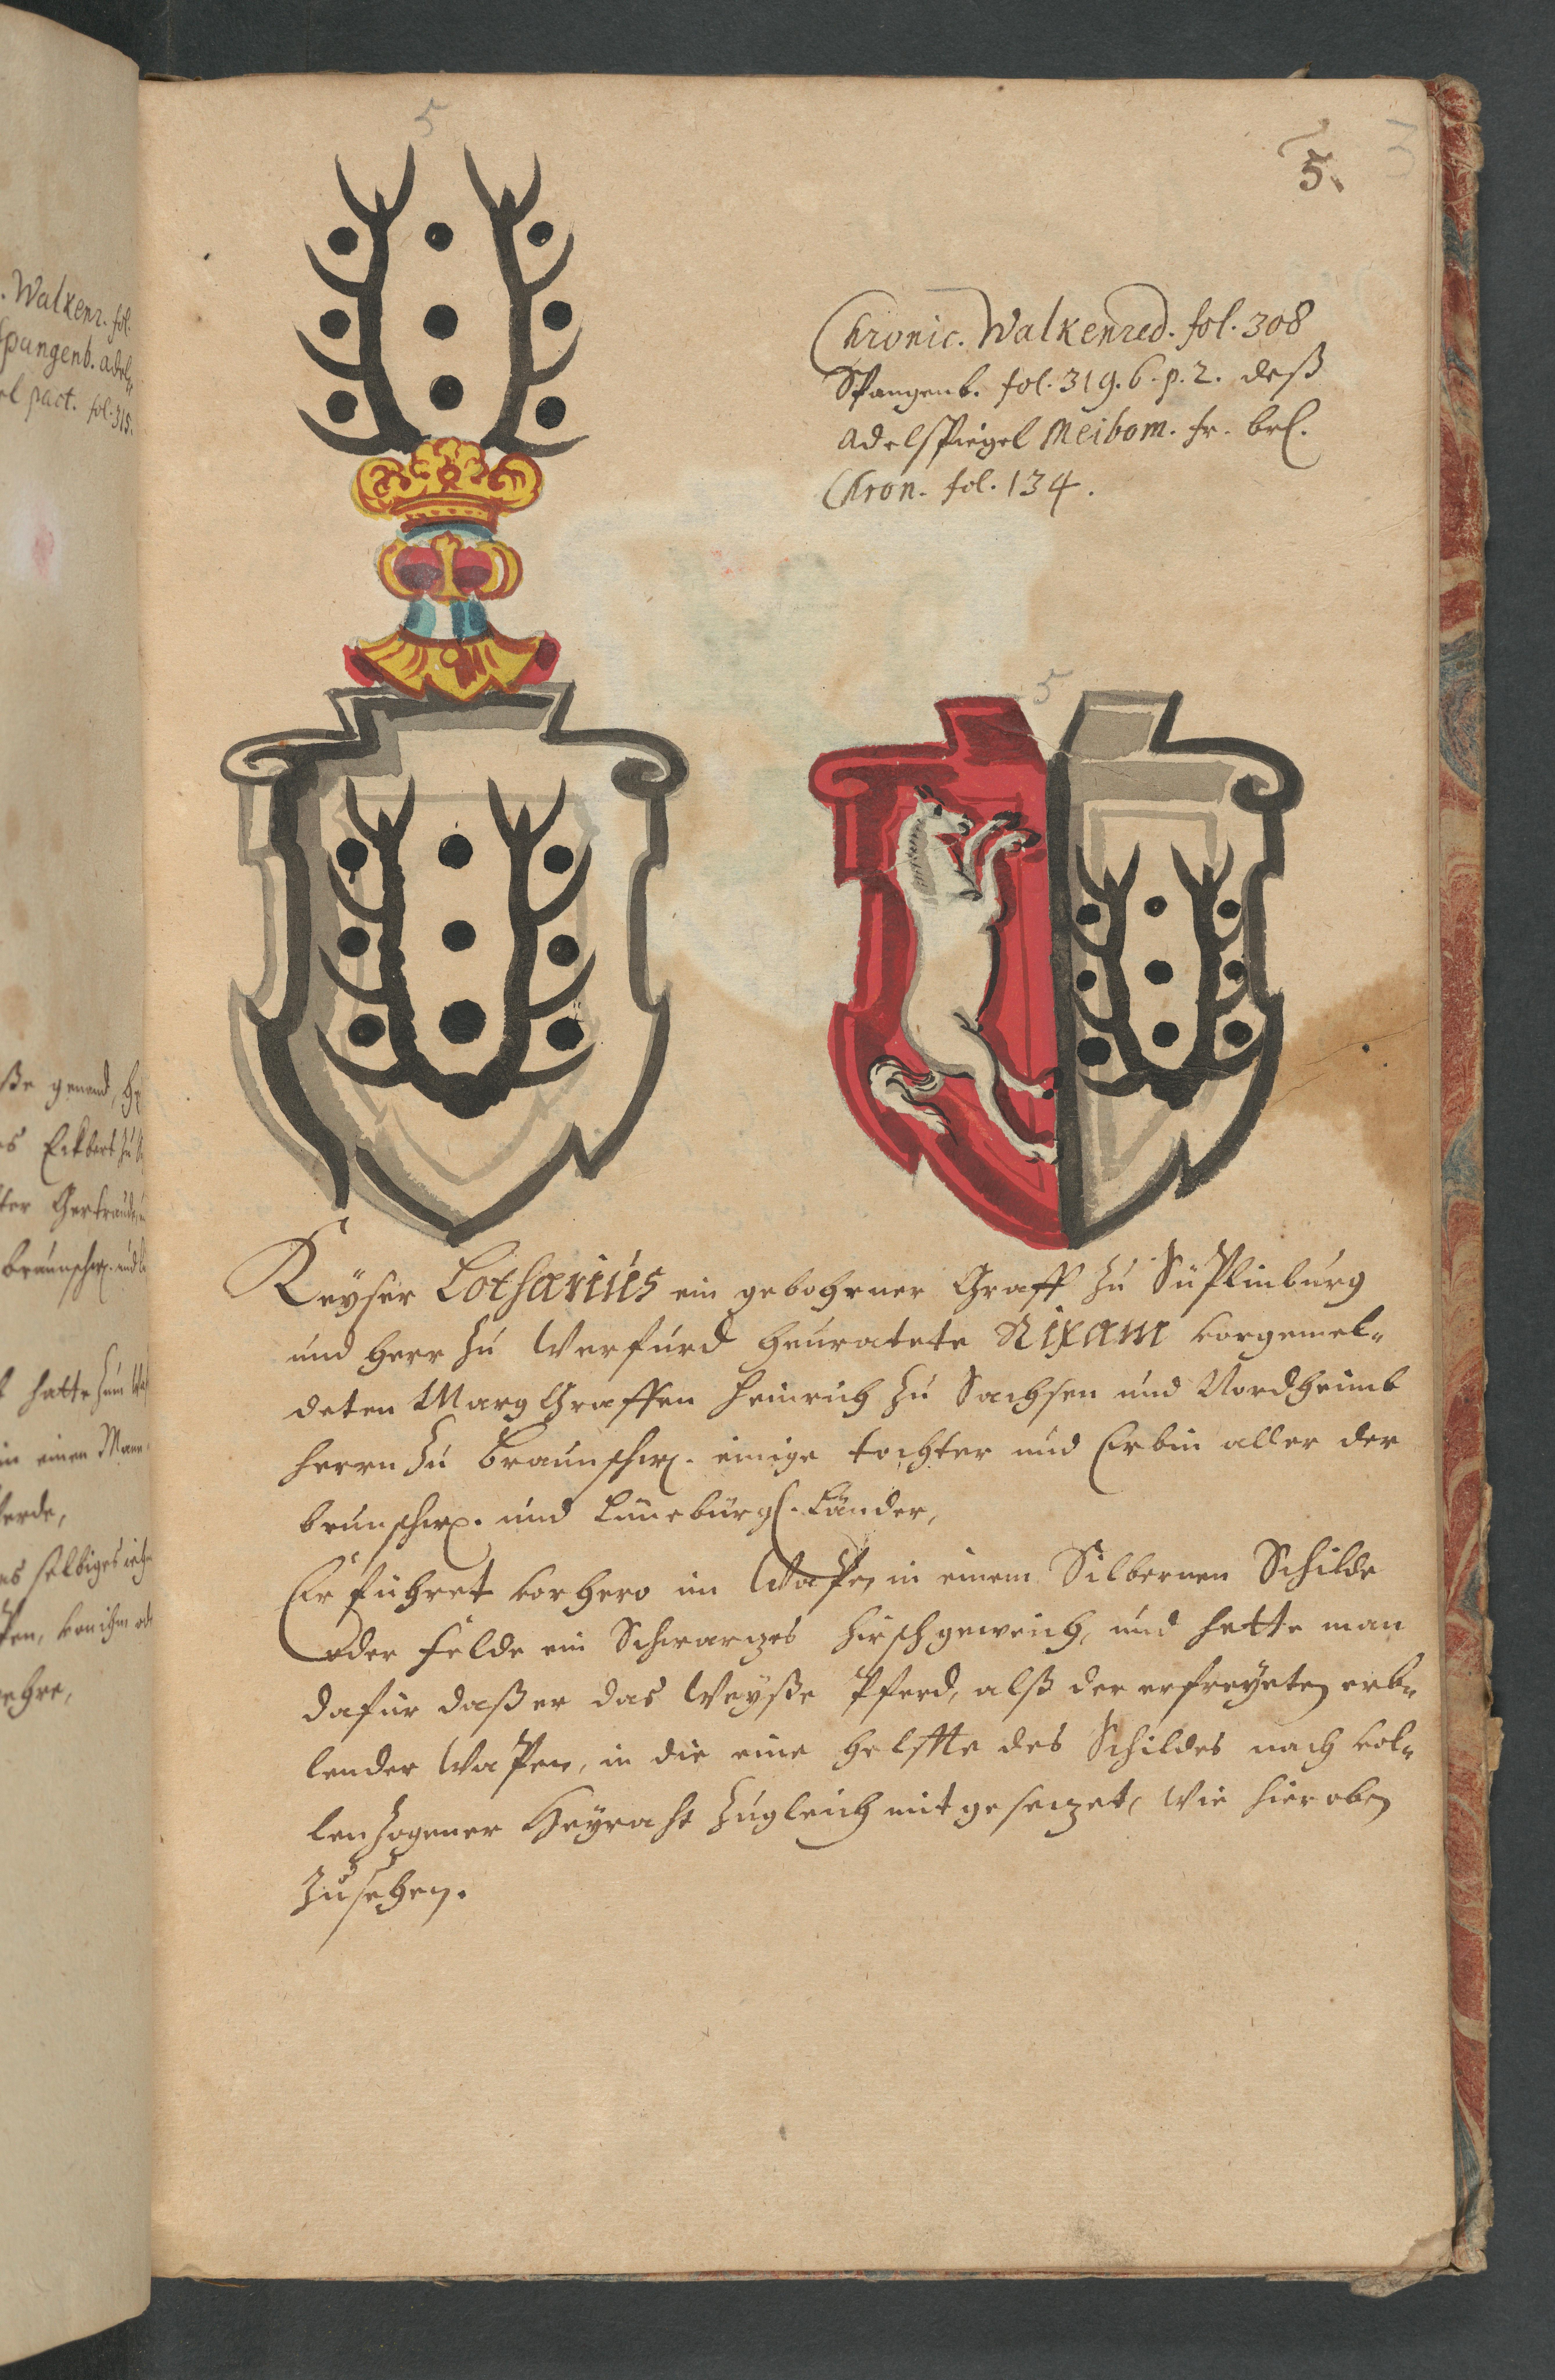 5
5.
3
Chronic. Walkenred. fol. 308
Spangenb. fol. 319. 6. p. 2. deß
Adelspiegel Meibom. fr. brl.
Chron. fol. 134.
5
Keyser Lotharius ein gebohrner Graff zu Süplinburg
und Herr zu Werfurd heuratete Rixam vorgemel-
deten Marg Graffen Heinrich zu Sachsen und Nordheimb
Herrn zu Braunschw. einige tochter und Erbin aller der
brunschw. und Lüneburgl. Länder,
Er führet vorhero im Wapen in einem Silbernen Schilde
oder Felde ein Schwarzes Hirschgeweich, und hette man
dafür daß er das Weyße Pferd, alß der erfreyeten erb-
lender Wapen, in die eine helffte des Schildes nach vol-
lenzogener Heyraht zugleich mit gesezet, wie hier oben
zusehen.
. Walkenr. fol.
Spangenb. adel-
el pact. fol. 315.
ße genand,
es Eckbert zu
ter Gertraud
Braunschw. und
hatte zum
in einen
erde,
es selbiges
pen, von ihm
ehre,